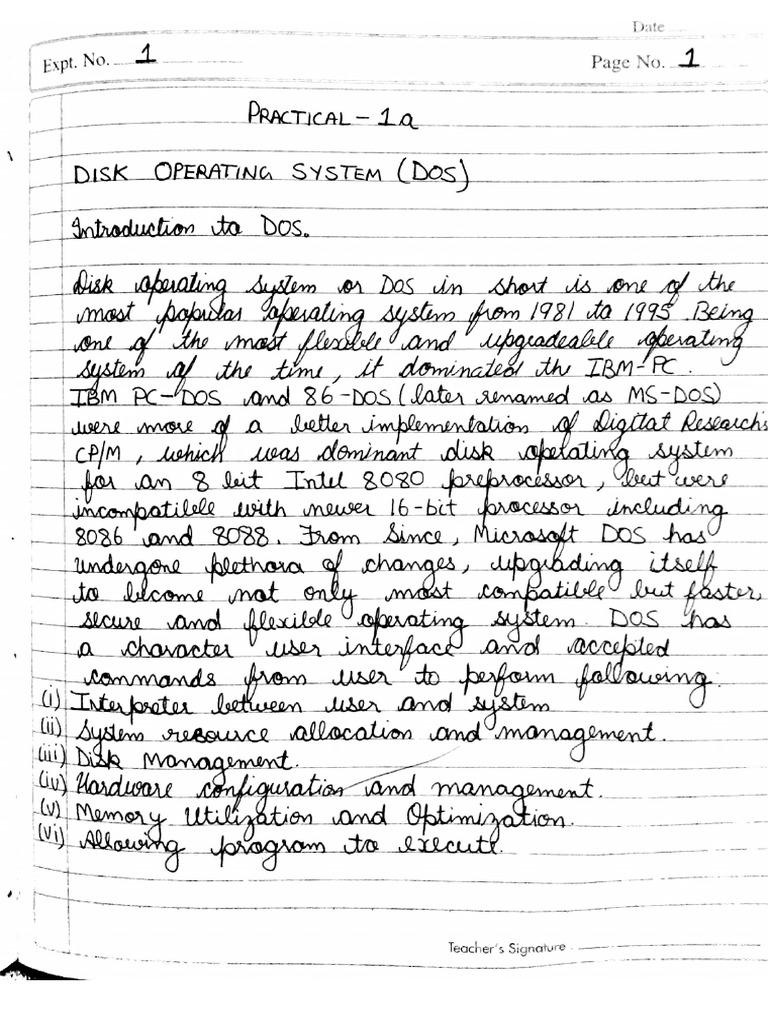 Date
Expt. No. 1
Page No. 1
PRACTICAL - 1a
DISK OPERATING SYSTEM (DOS)
Introduction to DOS.
Disk operating system or DOS in short is one of the
most popular operating system from 1981 to 1995. Being
one of the most flexible and upgradeable operating
system of the time, it dominated the IBM-PC.
IBM PC-DOS and 86-DOS (later renamed as MS-DOS)
were more of a better implementation of Digital Research's
CP/M, which was dominant disk operating system
for an 8 bit Intel 8080 preprocessor, but were
incompatible with newer 16-bit processor including
8086 and 8088. From Since, Microsoft DOS has
undergone plethora of changes, upgrading itself
to become not only most compatible but faster,
secure and flexible operating system. DOS has
a character user interface and accepted
commands from user to perform following.
(i) Interpreter between user and system
(ii) System resource allocation and management.
(iii) Disk Management.
(iv) Hardware configuration and management.
(v) Memory Utilization and Optimization.
(vi) Allowing program to execute.
Teacher's Signature